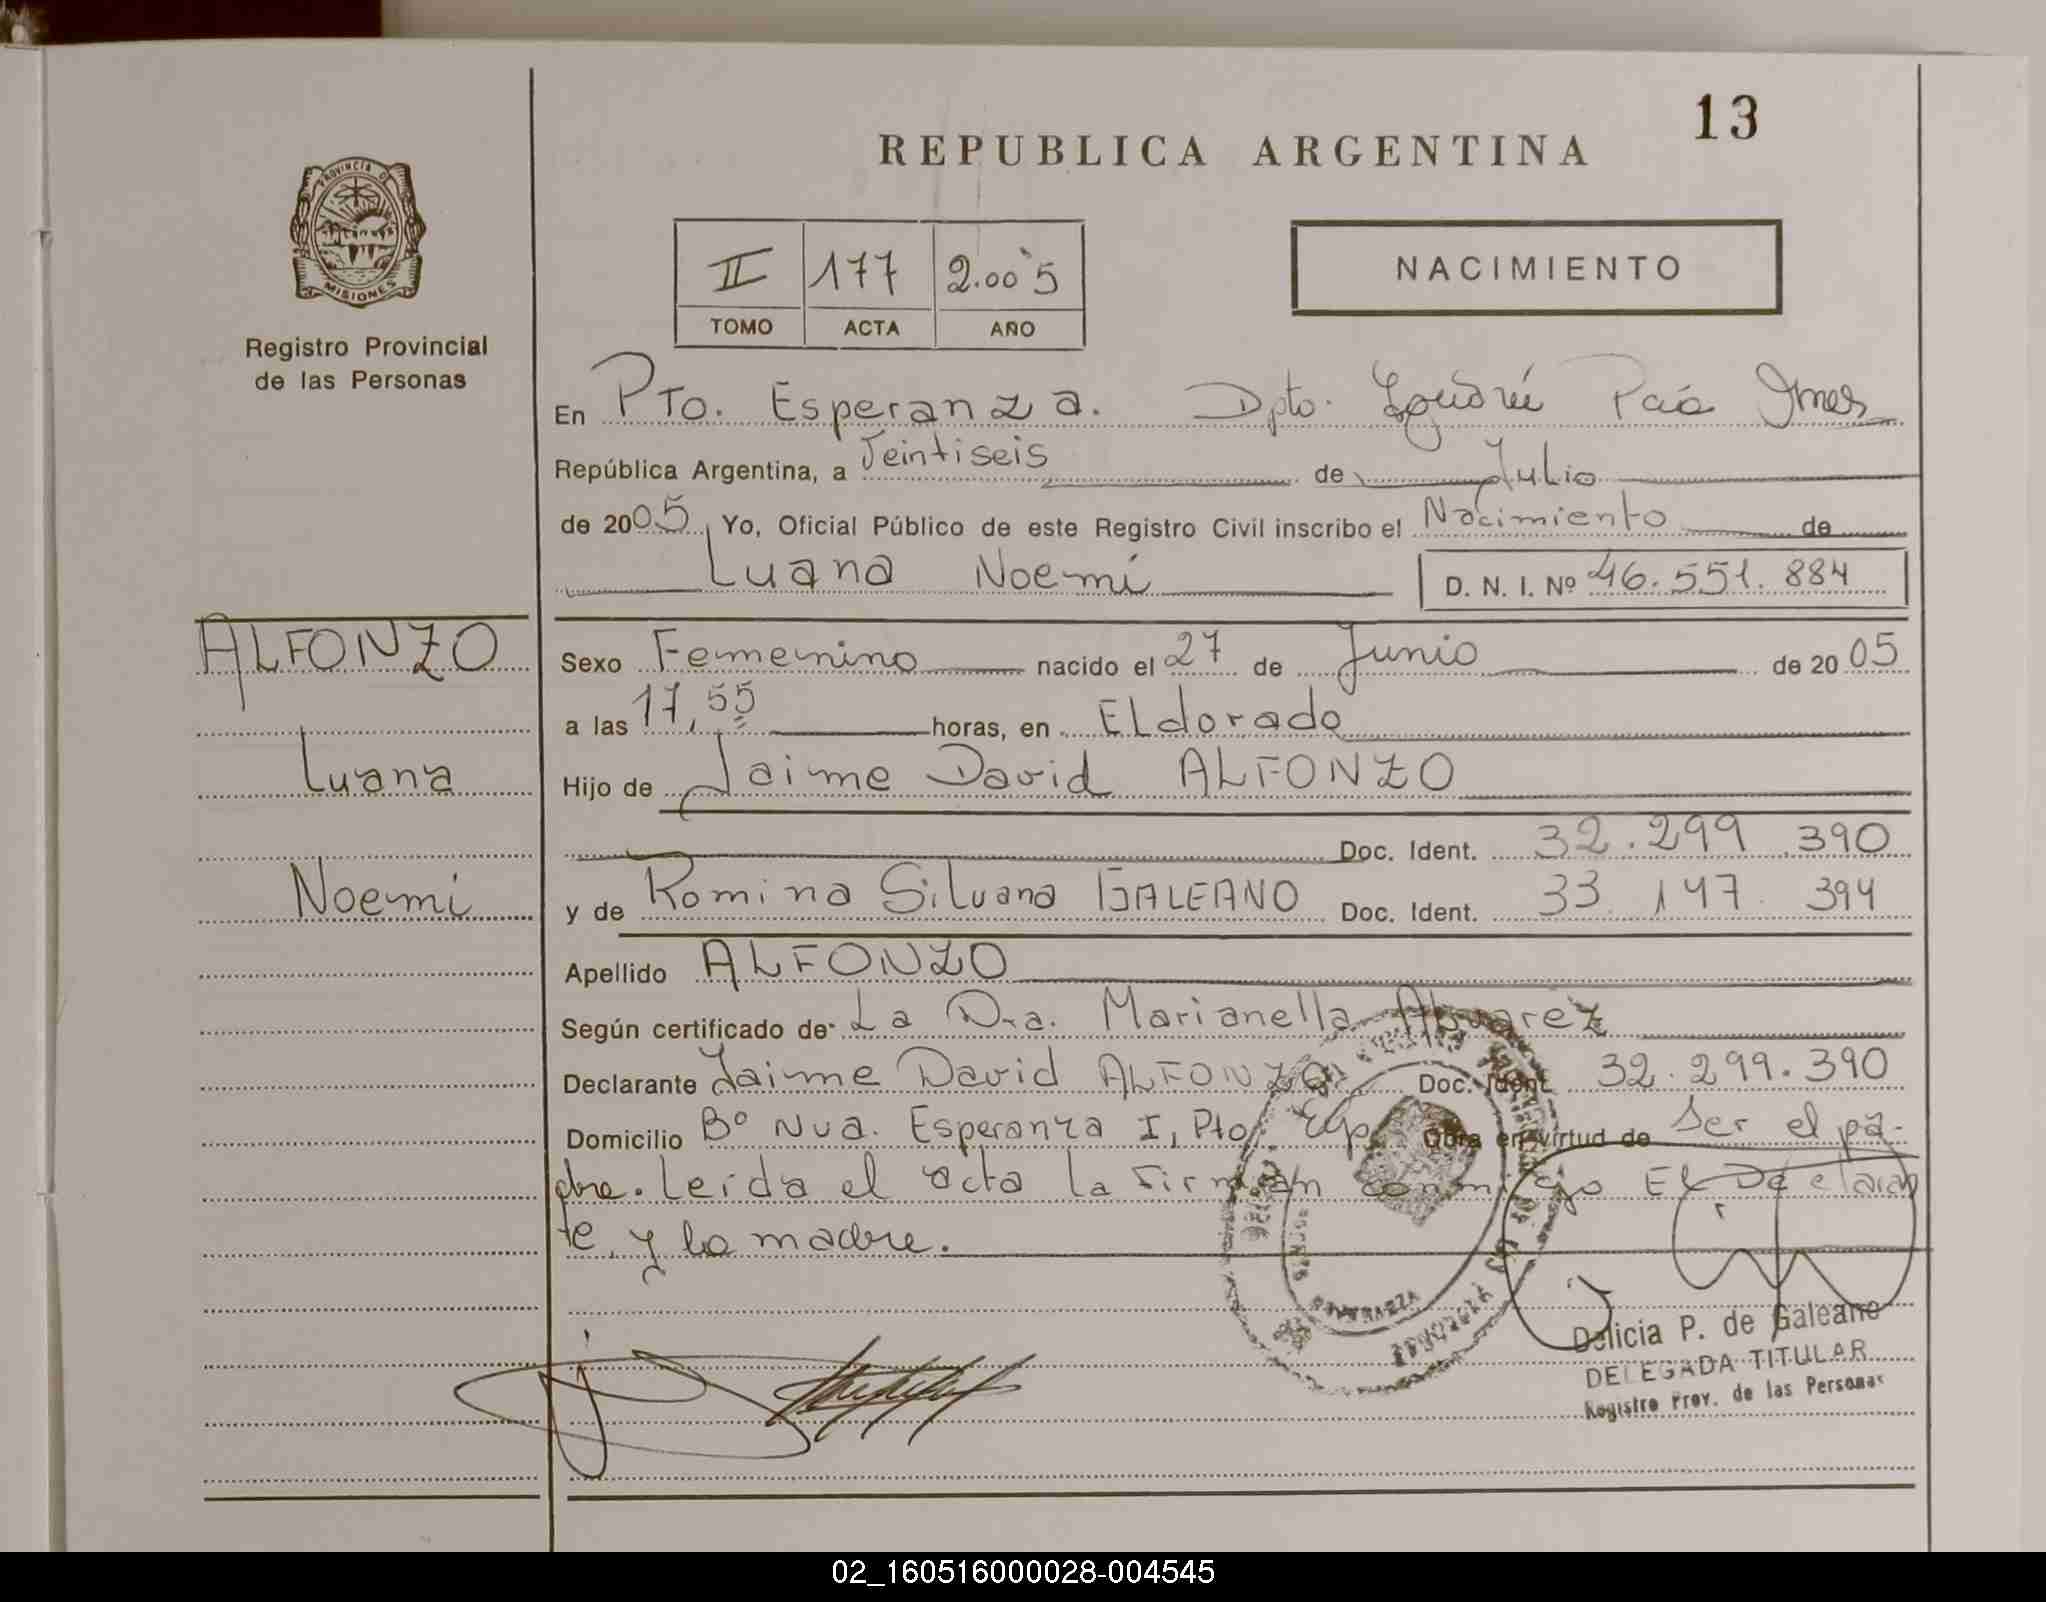 13
REPUBLICA ARGENTINA
PROVINCIA D
MISIONES
Registro Provincial
de las Personas
II 177 2.005
TOMO ACTA AÑO
NACIMIENTO
En Pto. Esperanza. Dpto.
República Argentina, a Veintiseis de Julio
de 2005 Yo, Oficial Público de este Registro Civil inscribo el Nacimiento de
Luana Noemi D. N. I. Nº 46.551.884
ALFONZO
Luana
Noemi
Sexo Femenino nacido el 27 de Junio de 2005
a las 17,55 horas, en ELdorado
Hijo de Jaime David ALFONZO
Doc. Ident. 32.299.390
y de Romina Silvana GALEANO Doc. Ident. 33.147.394
Apellido ALFONZO
Según certificado de La Dra. Marianella Alvarez
Declarante Jaime David ALFONZO Doc. Ident. 32.299.390
Domicilio Bº Nva. Esperanza I, Pto. Esp. Obra en virtud de Ser el pa-
dre. Leída el acta la firman conmigo El Declaran
te y la madre.
Delicia P. de Galeano
DELEGADA TITULAR
Registro Prov. de las Personas
02_160516000028-004545